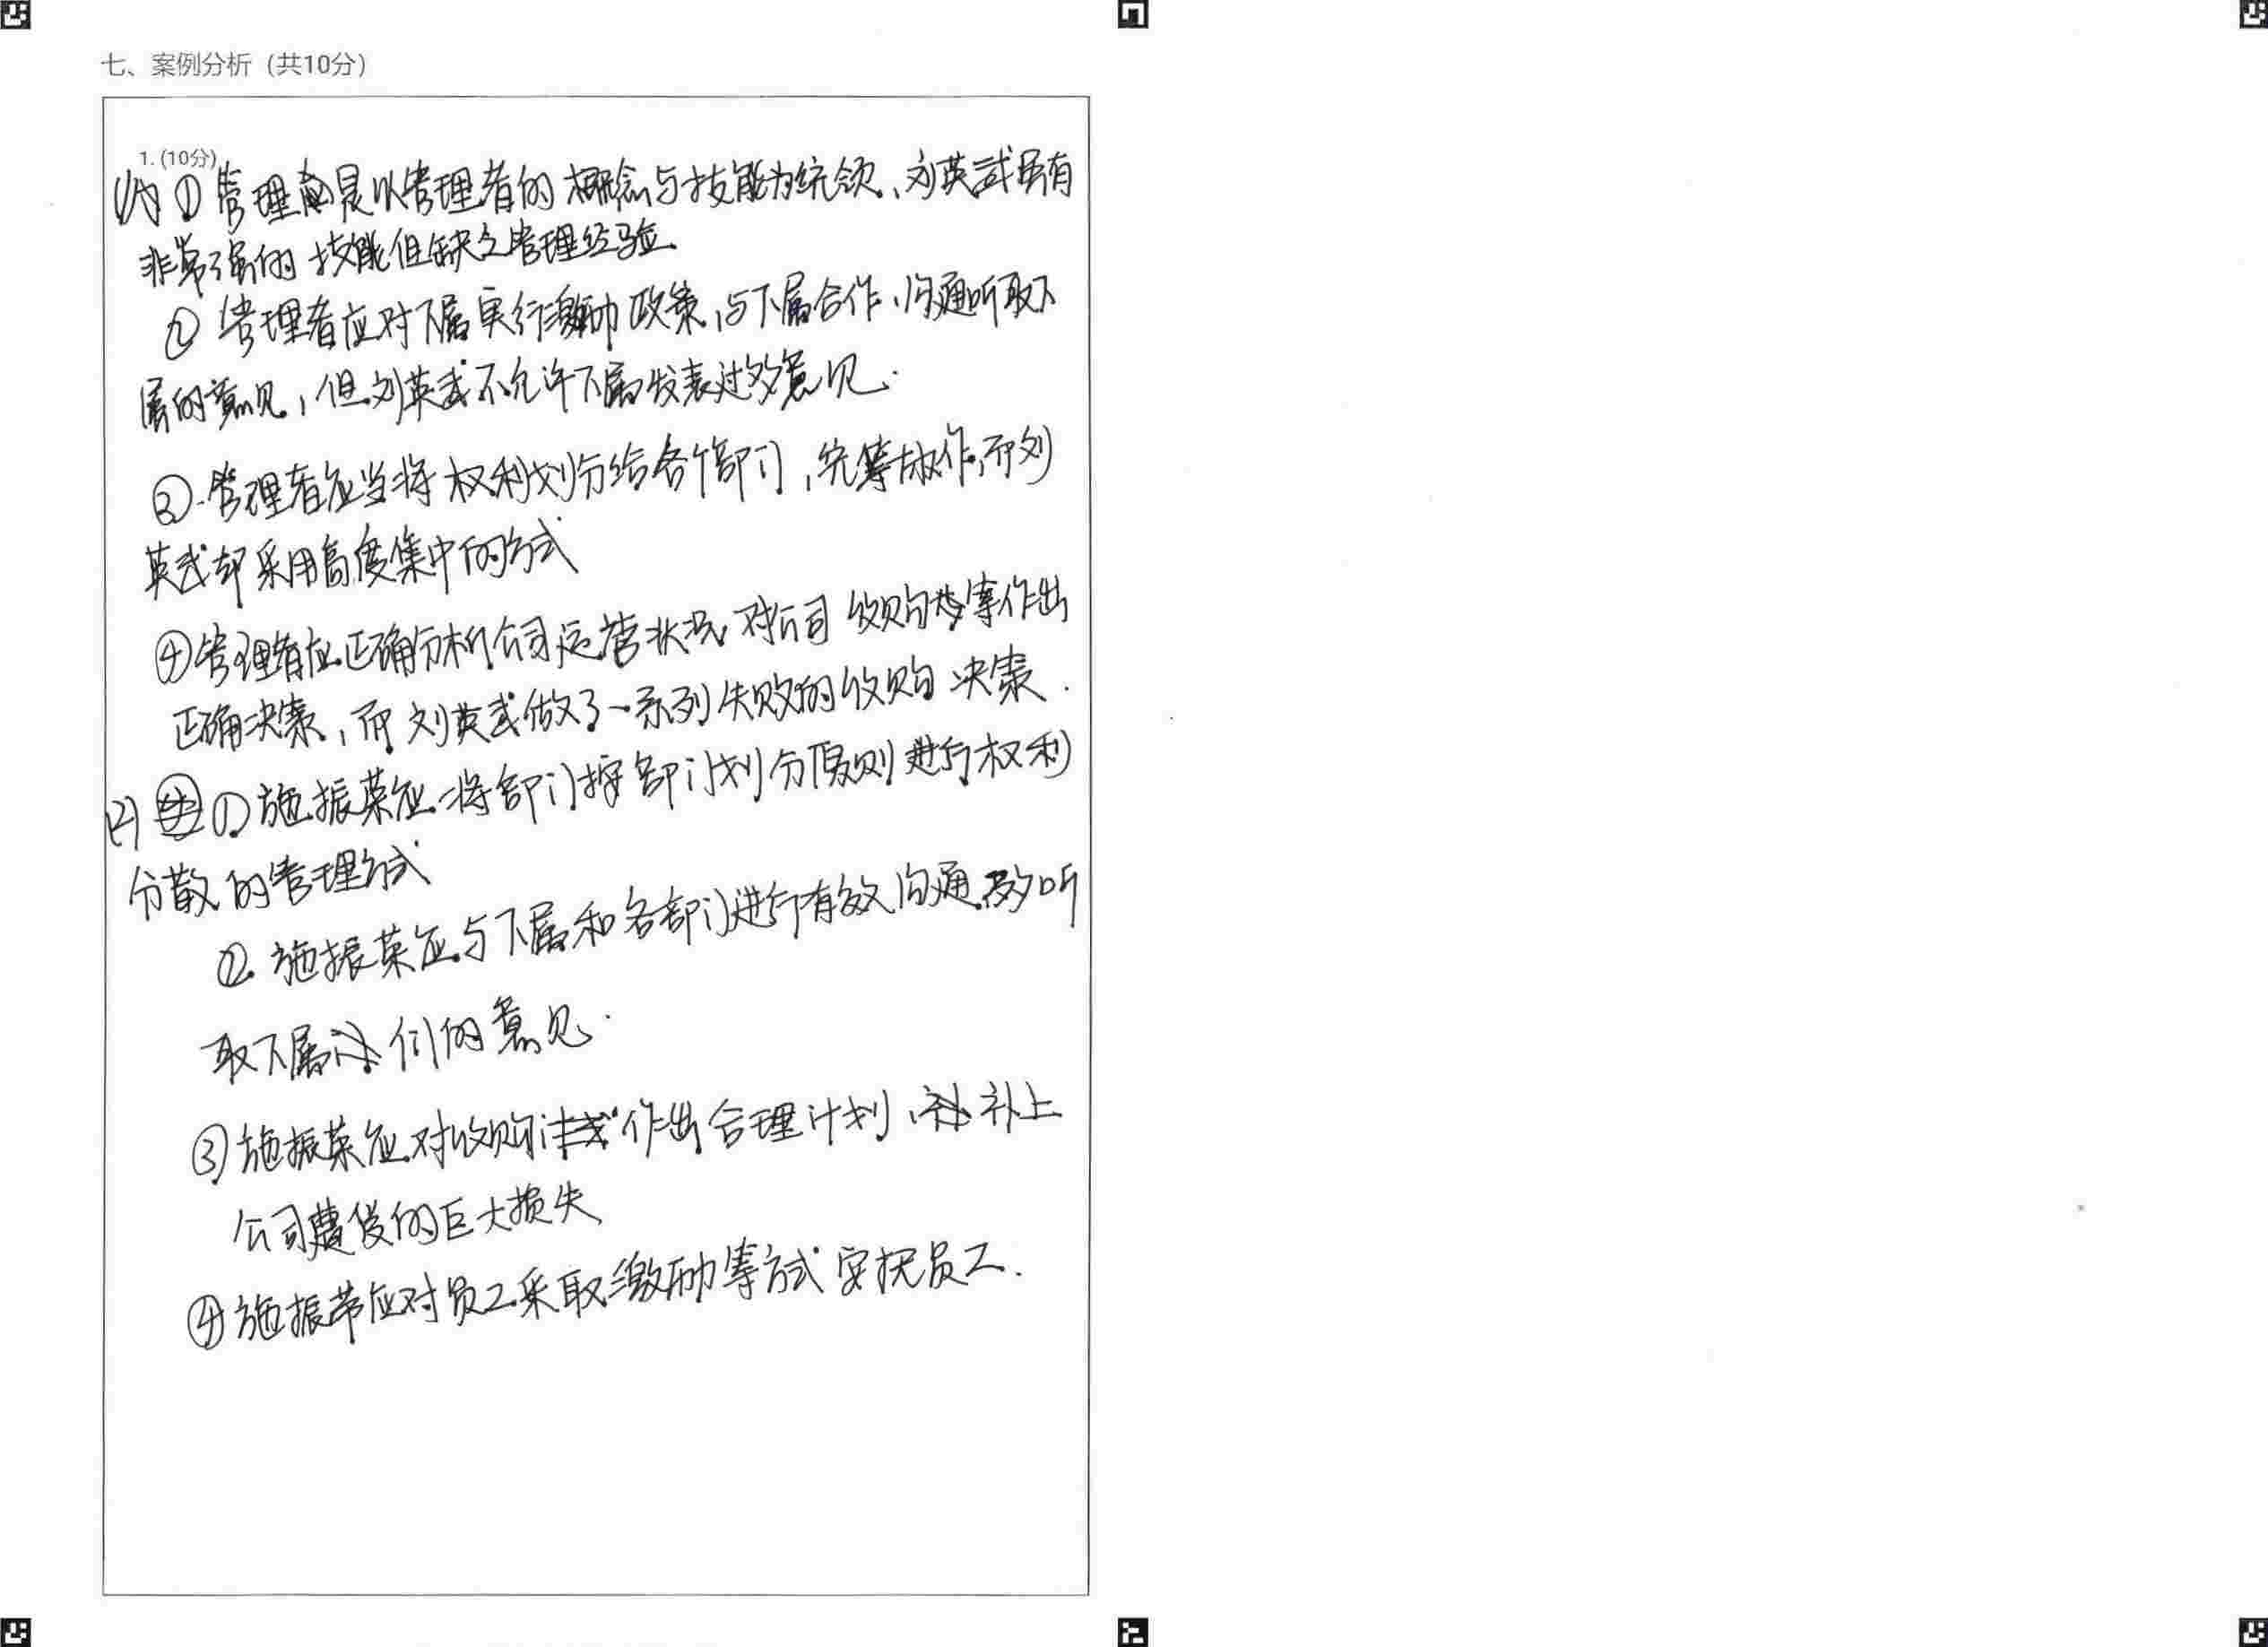 七、案例分析（共10分）
1. (10分)
① 管理是以管理者的概念与技能为统领、刘英武虽有
非常强的技能但缺乏管理经验
② 管理者应对下属实行激励政策，与下属合作、沟通听取下
属的意见，但刘英武不允许下属发表过多意见.
③ 管理者应当将权利划分给各个部门，统筹协作，而刘
英武却采用高度集中的方式
④管理者应正确分析公司运营状况，对公司收购等作出
正确决策，而刘英武做了一系列失败的收购决策.
(2) ① 施振荣应将部门按部门划分原则进行权利
分散的管理方式
② 施振荣应与下属和各部门进行有效沟通，多听
取下属们的意见.
③ 施振荣应对收购作出合理计划，补上
公司遭受的巨大损失
④ 施振荣应对员工采取激励等方式安抚员工.